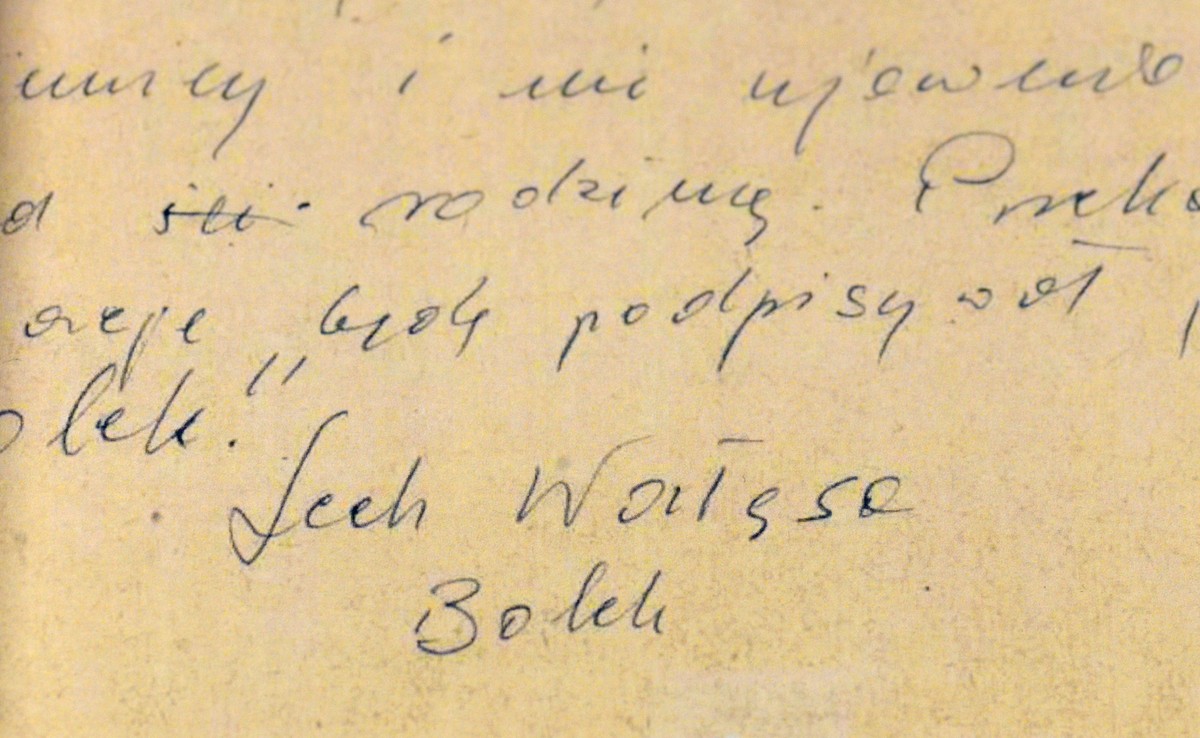 emnicy i nie ujawnia
d rodziną. Przek
acje będę podpisywał p
olek."
Lech Wałęsa
Bolek